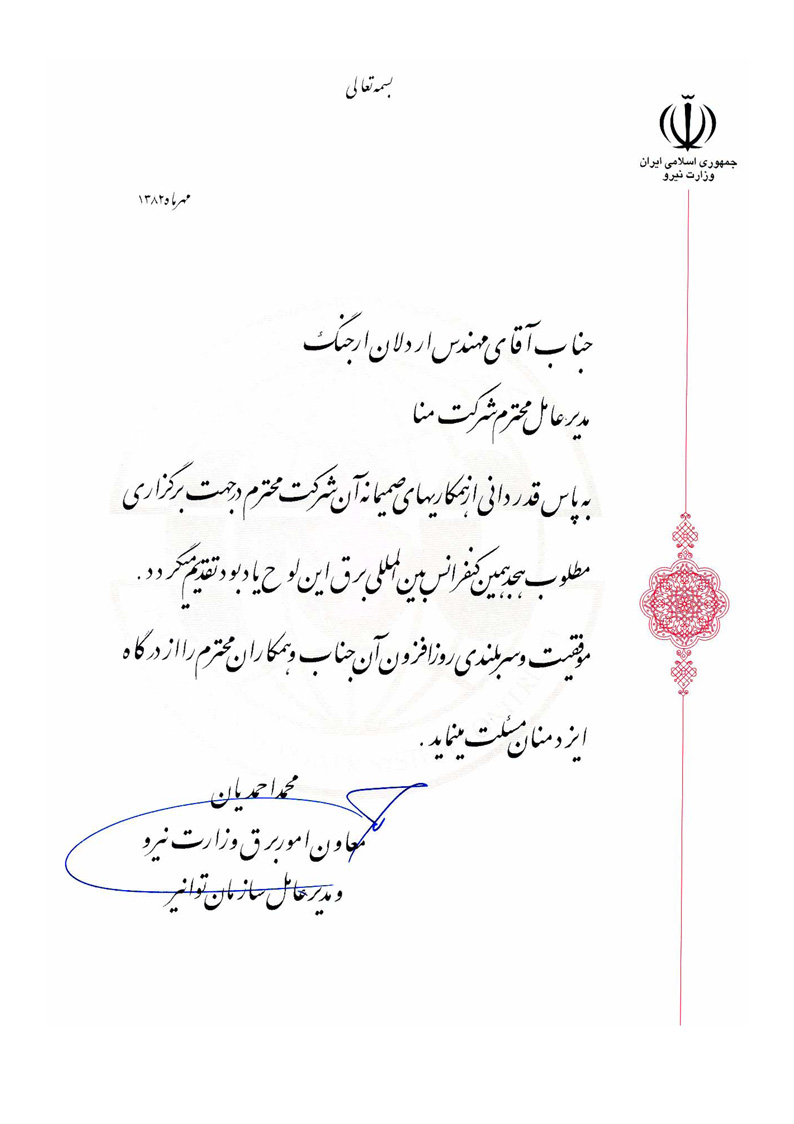 بسمه تعالی
جمهوری اسلامی ایران
وزارت نیرو
مهرماه ۱۳۸۲
جناب آقای مهندس اردلان ارجنگ
مدیرعامل محترم شرکت منا
به پاس قدردانی از همکاریهای صمیمانه آن شرکت محترم در جهت برگزاری
مطلوب هجدهمین کنفرانس بین المللی برق این لوح یادبود تقدیم میگردد.
موفقیت و سربلندی روزافزون آن جناب و همکاران محترم را از درگاه
ایزد منان مسئلت مینماید.
محمد احمدیان
معاون امور برق وزارت نیرو
و مدیرعامل سازمان توانیر